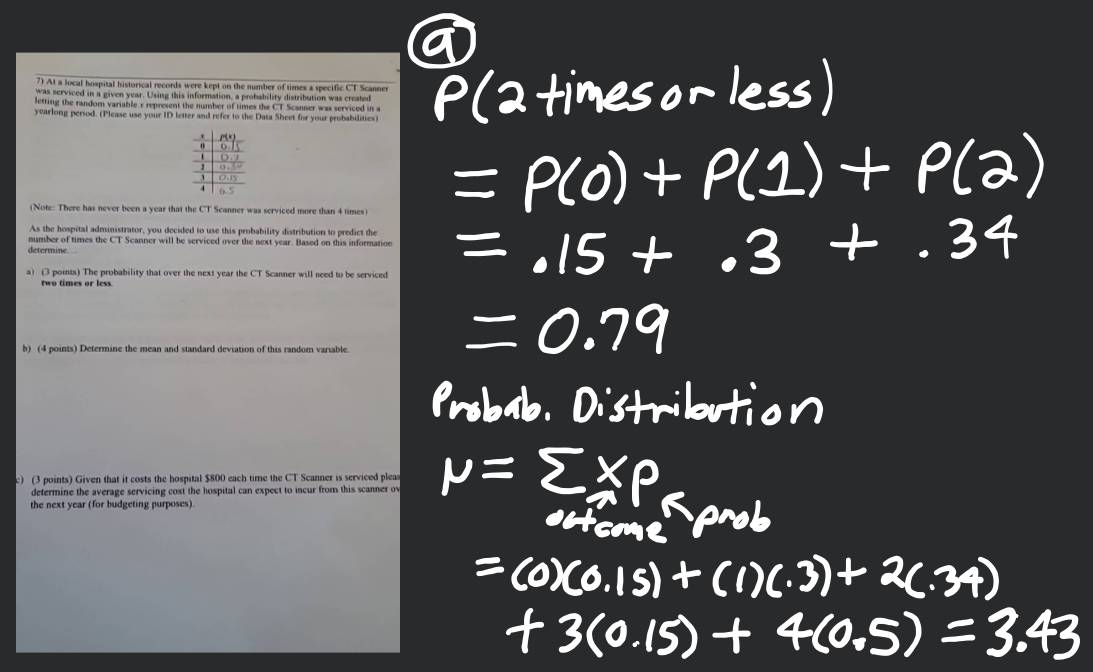 7) At a local hospital historical records were kept on the number of times a specific CT Scanner
was serviced in a given year. Using this information, a probability distribution was created
letting the random variable x represent the number of times the CT Scanner was serviced in a
yearlong period. (Please use your ID letter and refer to the Data Sheet for your probabilities)
x P(x)
0 0.15
1 0.3
2 0.34
3 0.15
4 0.5
(Note: There has never been a year that the CT Scanner was serviced more than 4 times)
As the hospital administrator, you decided to use this probability distribution to predict the
number of times the CT Scanner will be serviced over the next year. Based on this information
determine...
a) (3 points) The probability that over the next year the CT Scanner will need to be serviced
two times or less.
b) (4 points) Determine the mean and standard deviation of this random variable.
c) (3 points) Given that it costs the hospital $800 each time the CT Scanner is serviced pleas
determine the average servicing cost the hospital can expect to incur from this scanner ov
the next year (for budgeting purposes).
a
P(2 times or less)
= P(0) + P(1) + P(2)
= .15 + .3 + .34
= 0.79
Probab. Distribution
μ = Σxp
outcome prob
= (0)(0.15) + (1)(.3) + 2(.34)
+ 3(0.15) + 4(0.5) = 3.43